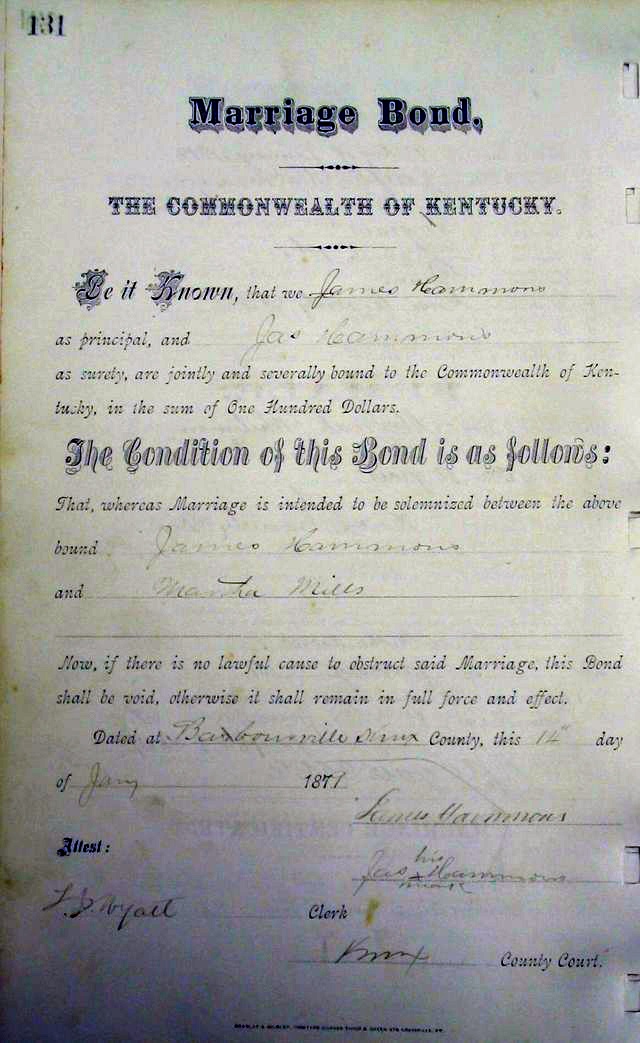 131
Marriage Bond,
THE COMMONWEALTH OF KENTUCKY.
Be it Known, that we James Hammons
as principal, and Jas Hammons
as surety, are jointly and severally bound to the Commonwealth of Ken-
tucky, in the sum of One Hundred Dollars.
The Condition of this Bond is as follows:
That, whereas Marriage is intended to be solemnized between the above
bound James Hammons
and Martha Mills
Now, if there is no lawful cause to obstruct said Marriage, this Bond
shall be void, otherwise it shall remain in full force and effect.
Dated at Barbourville Knox County, this 14" day
of Jany 1871
James Hammons
Attest:
his
Jas x Hammons
mark
Wyatt Clerk
Knox County Court.